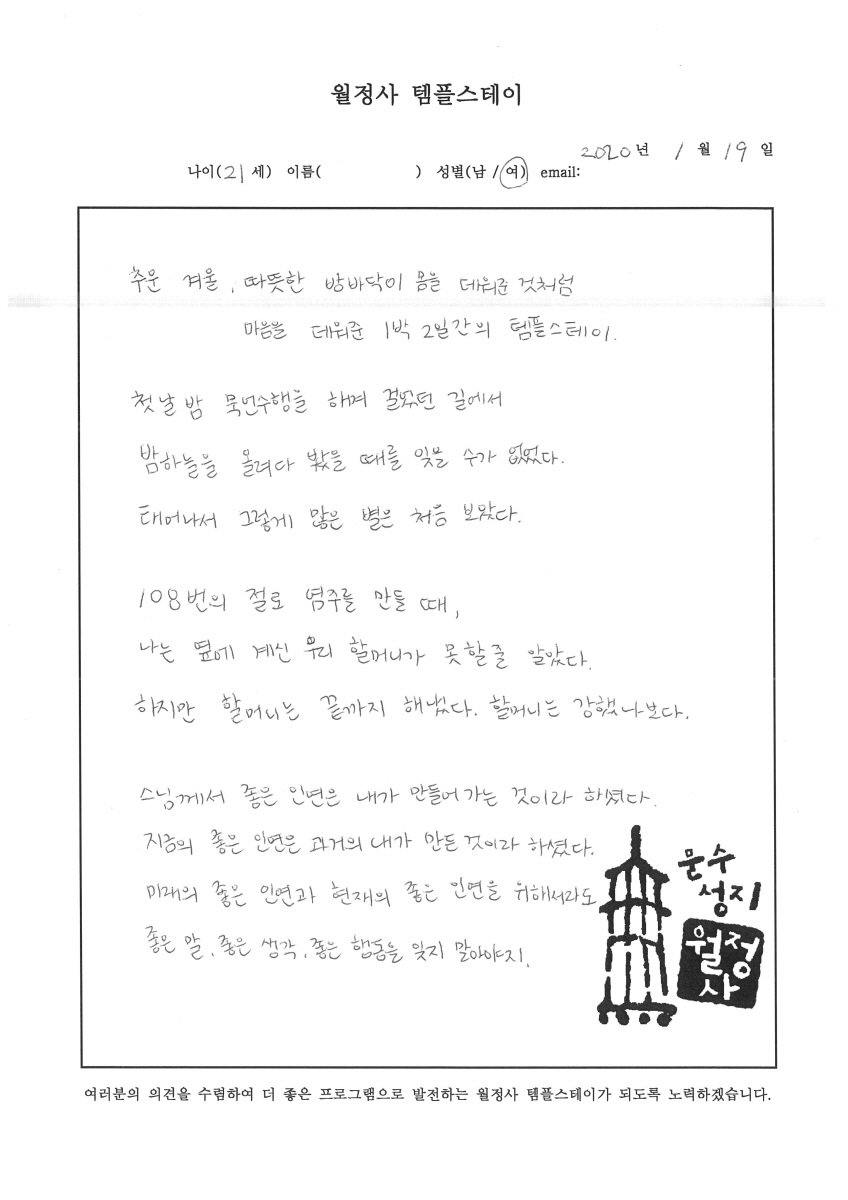 월정사 템플스테이
2020년 1월 19일
나이(21세) 이름( ) 성별(남 / 여) email:
추운 겨울, 따뜻한 방바닥이 몸을 데워준 것처럼
마음을 데워준 1박 2일간의 템플스테이.
첫날 밤 묵언수행을 하며 걸었던 길에서
밤하늘을 올려다 봤을 때를 잊을 수가 없었다.
태어나서 그렇게 많은 별은 처음 보았다.
108번의 절로 염주를 만들 때,
나는 옆에 계신 우리 할머니가 못할줄 알았다.
하지만 할머니는 끝까지 해냈다. 할머니는 강했나보다.
스님께서 좋은 인연은 내가 만들어 가는 것이라 하셨다.
지금의 좋은 인연은 과거의 내가 만든 것이라 하셨다.
미래의 좋은 인연과 현재의 좋은 인연을 위해서라도
좋은 말, 좋은 생각, 좋은 행동을 잊지 말아야지.
문수
성지
월정
사
여러분의 의견을 수렴하여 더 좋은 프로그램으로 발전하는 월정사 템플스테이가 되도록 노력하겠습니다.